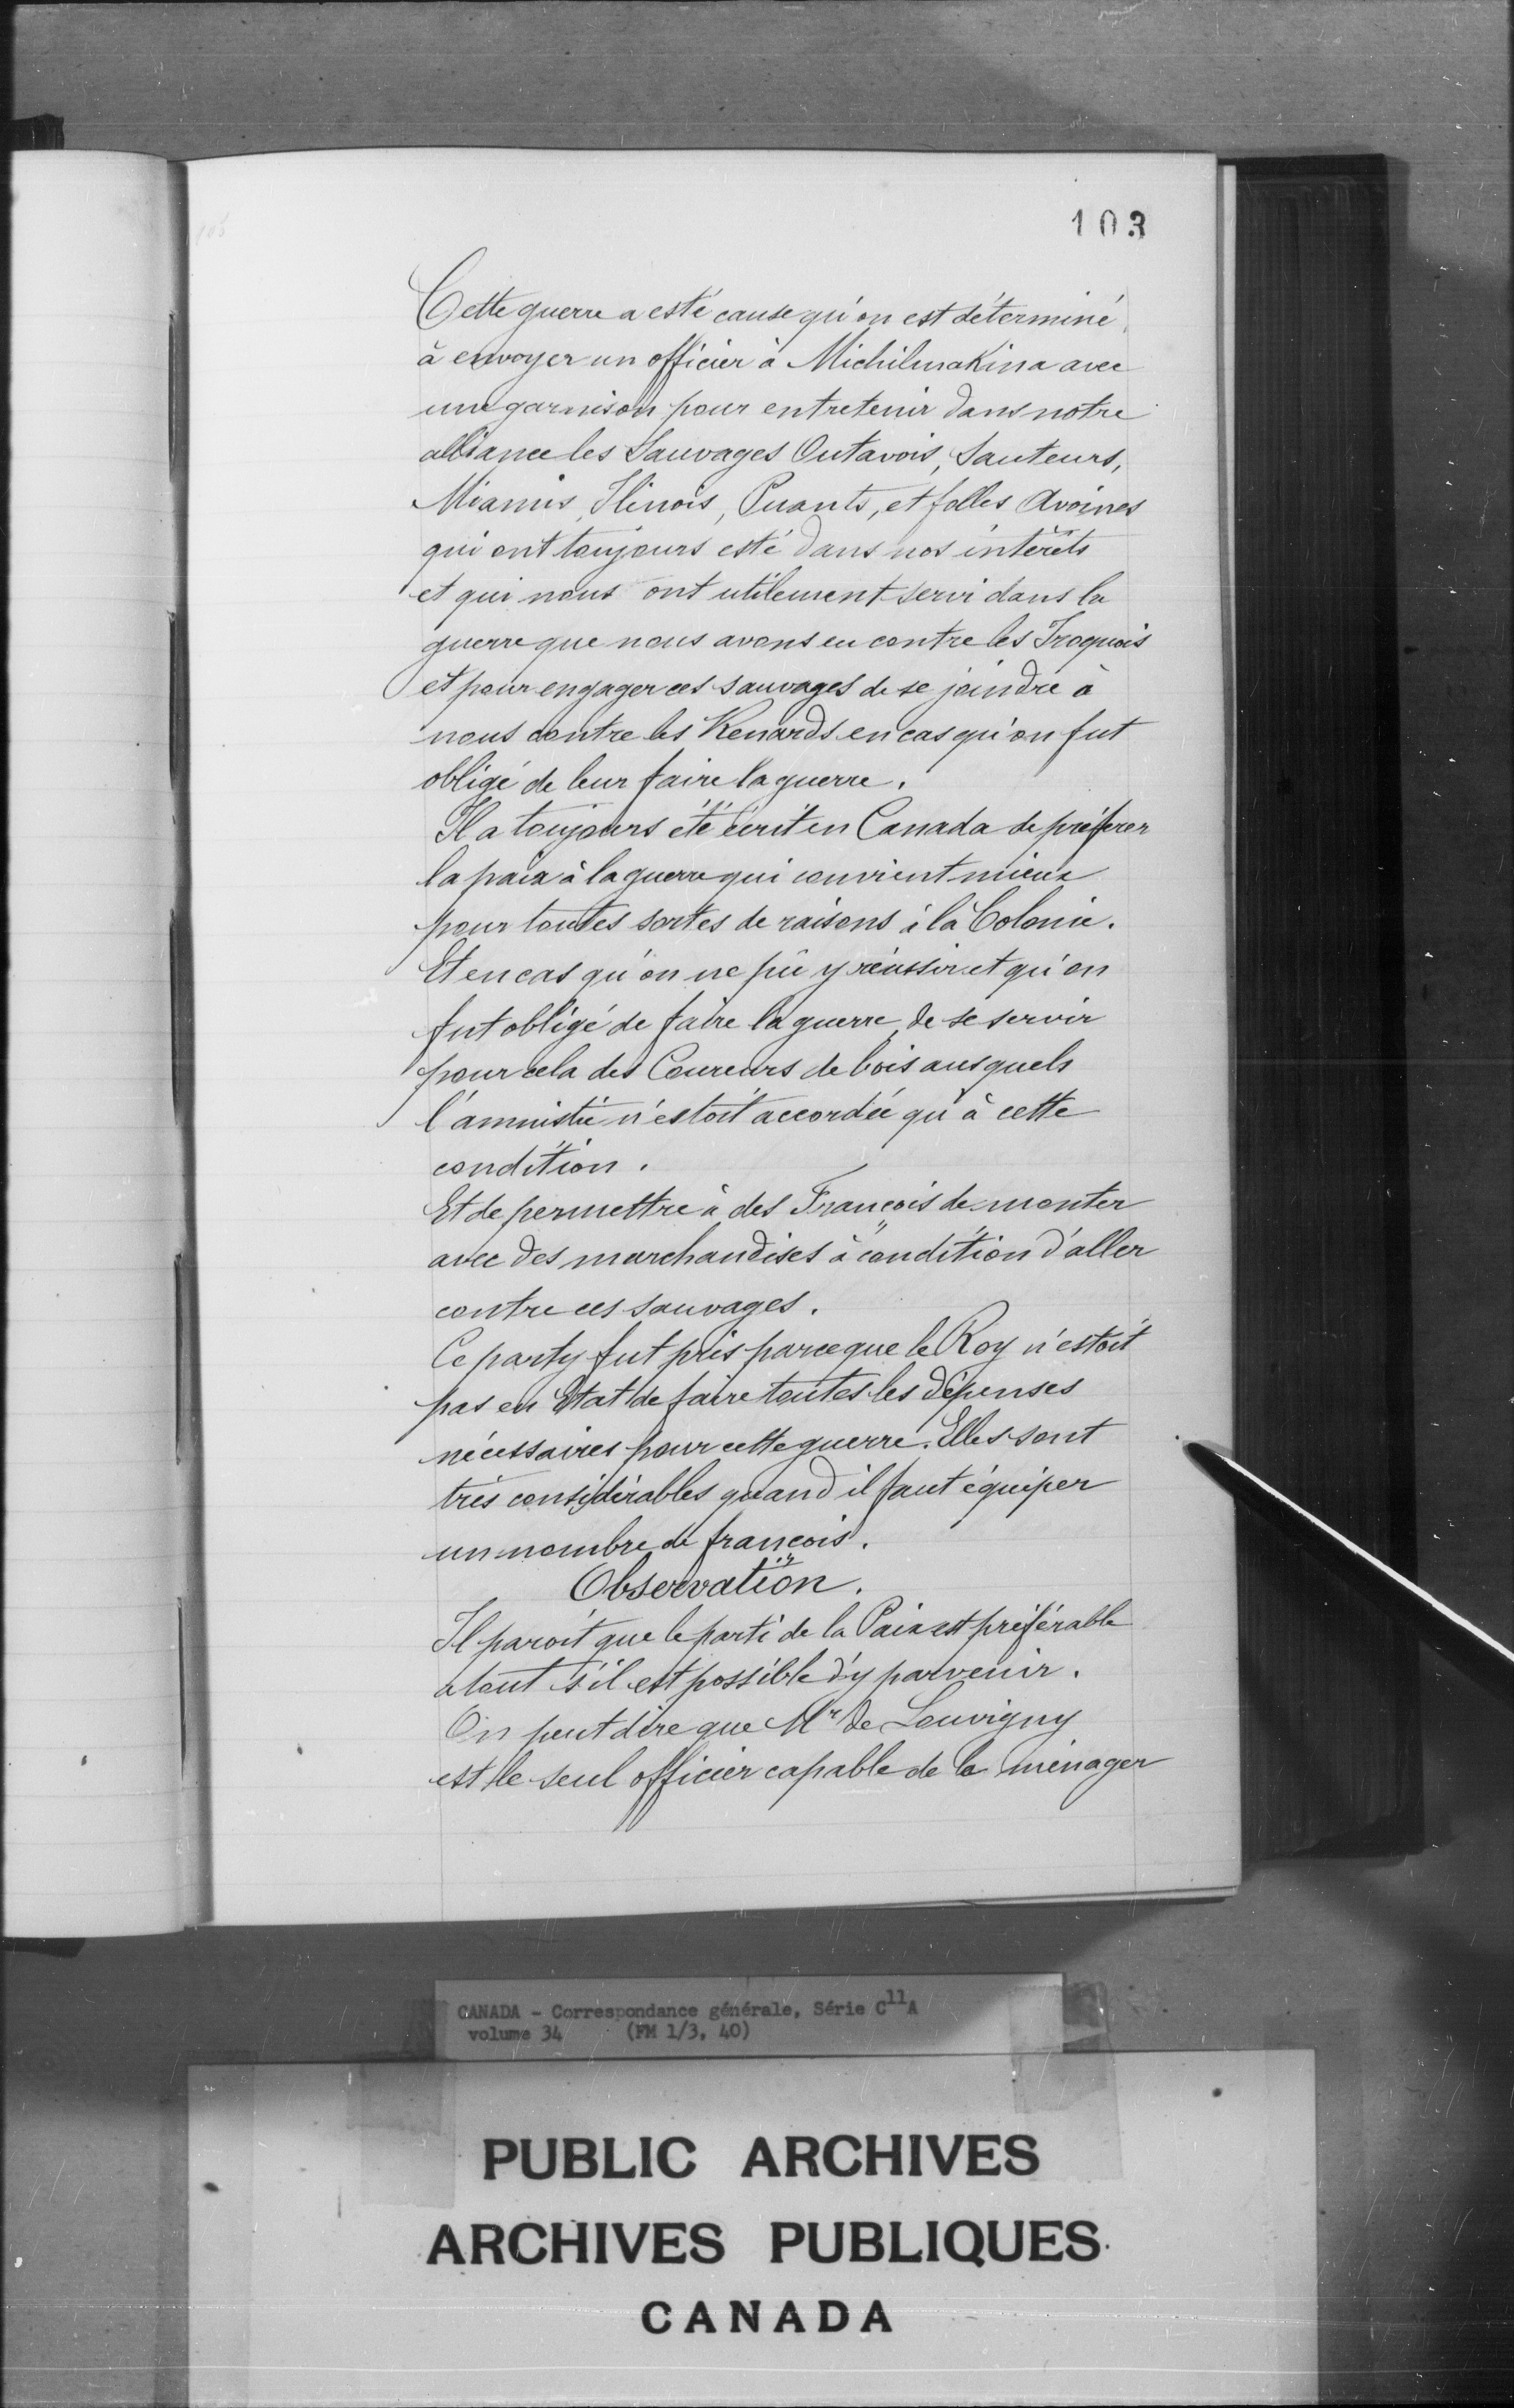 103
Cette guerre a esté cause qu'on est déterminé
à envoyer un officier à Michilmakina avec
une garnison pour entretenir dans notre
alliance les Sauvages Outavois, Sauteurs,
Miamis, Ilinois, Puants, et folles Avoines
qui ont toujours esté dans nos intérêts
et qui nous ont utilement servi dans la
guerre que nous avons eu contre les Iroquois
et pour engager ces sauvages de se joindre à
nous contre les Renards en cas qu'on fut
obligé de leur faire la guerre.
Il a toujours été écrit en Canada de préferer
la paix à la guerre qui convient mieux
pour toutes sortes de raisons à la Colonie.
Et en cas qu'on ne pû y réussir et qu'on
fut obligé de faire la guerre, de se servir
pour cela des Coureurs de bois ausquels
l'amnistie n'estoit accordée qu'à cette
condition.
Et de permettre à des François de monter
avec des marchandises à condition d'aller
contre ces sauvages.
Ce party fut pris parceque le Roy n'estoit
pas en Etat de faire toutes les dépenses
nécessaires pour cette guerre. Elles sont
très considérables quand il faut équiper
un nombre de françois.
Observation.
Il paroit que le parti de la Paix est préférable
a tout s'il est possible d'y parvenir.
On peut dire que Mr de Louvigny
est le seul officier capable de la ménager
CANADA - Correspondance générale, Série C11A
volume 34 (FM 1/3, 40)
PUBLIC ARCHIVES
ARCHIVES PUBLIQUES
CANADA